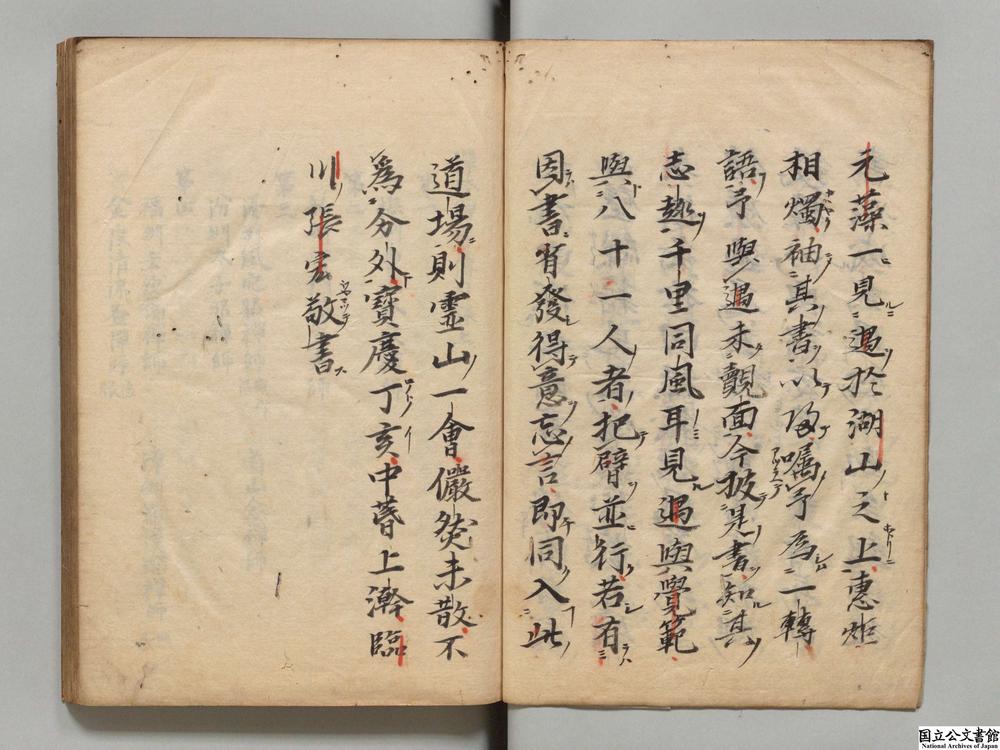 元藻一見遇於湖山之上惠炬
相燭袖其書以歸囑予爲一轉
語予與遇未覿面今披是書知其
志趣千里同風耳見遇與覺範
與八十一人者把臂並行若有
因書有發得意忘言即同入此
道場則靈山一會儼然未散不
爲分外寶慶丁亥中春上澣臨
川張宏敬書
国立公文書館
National Archives of Japan